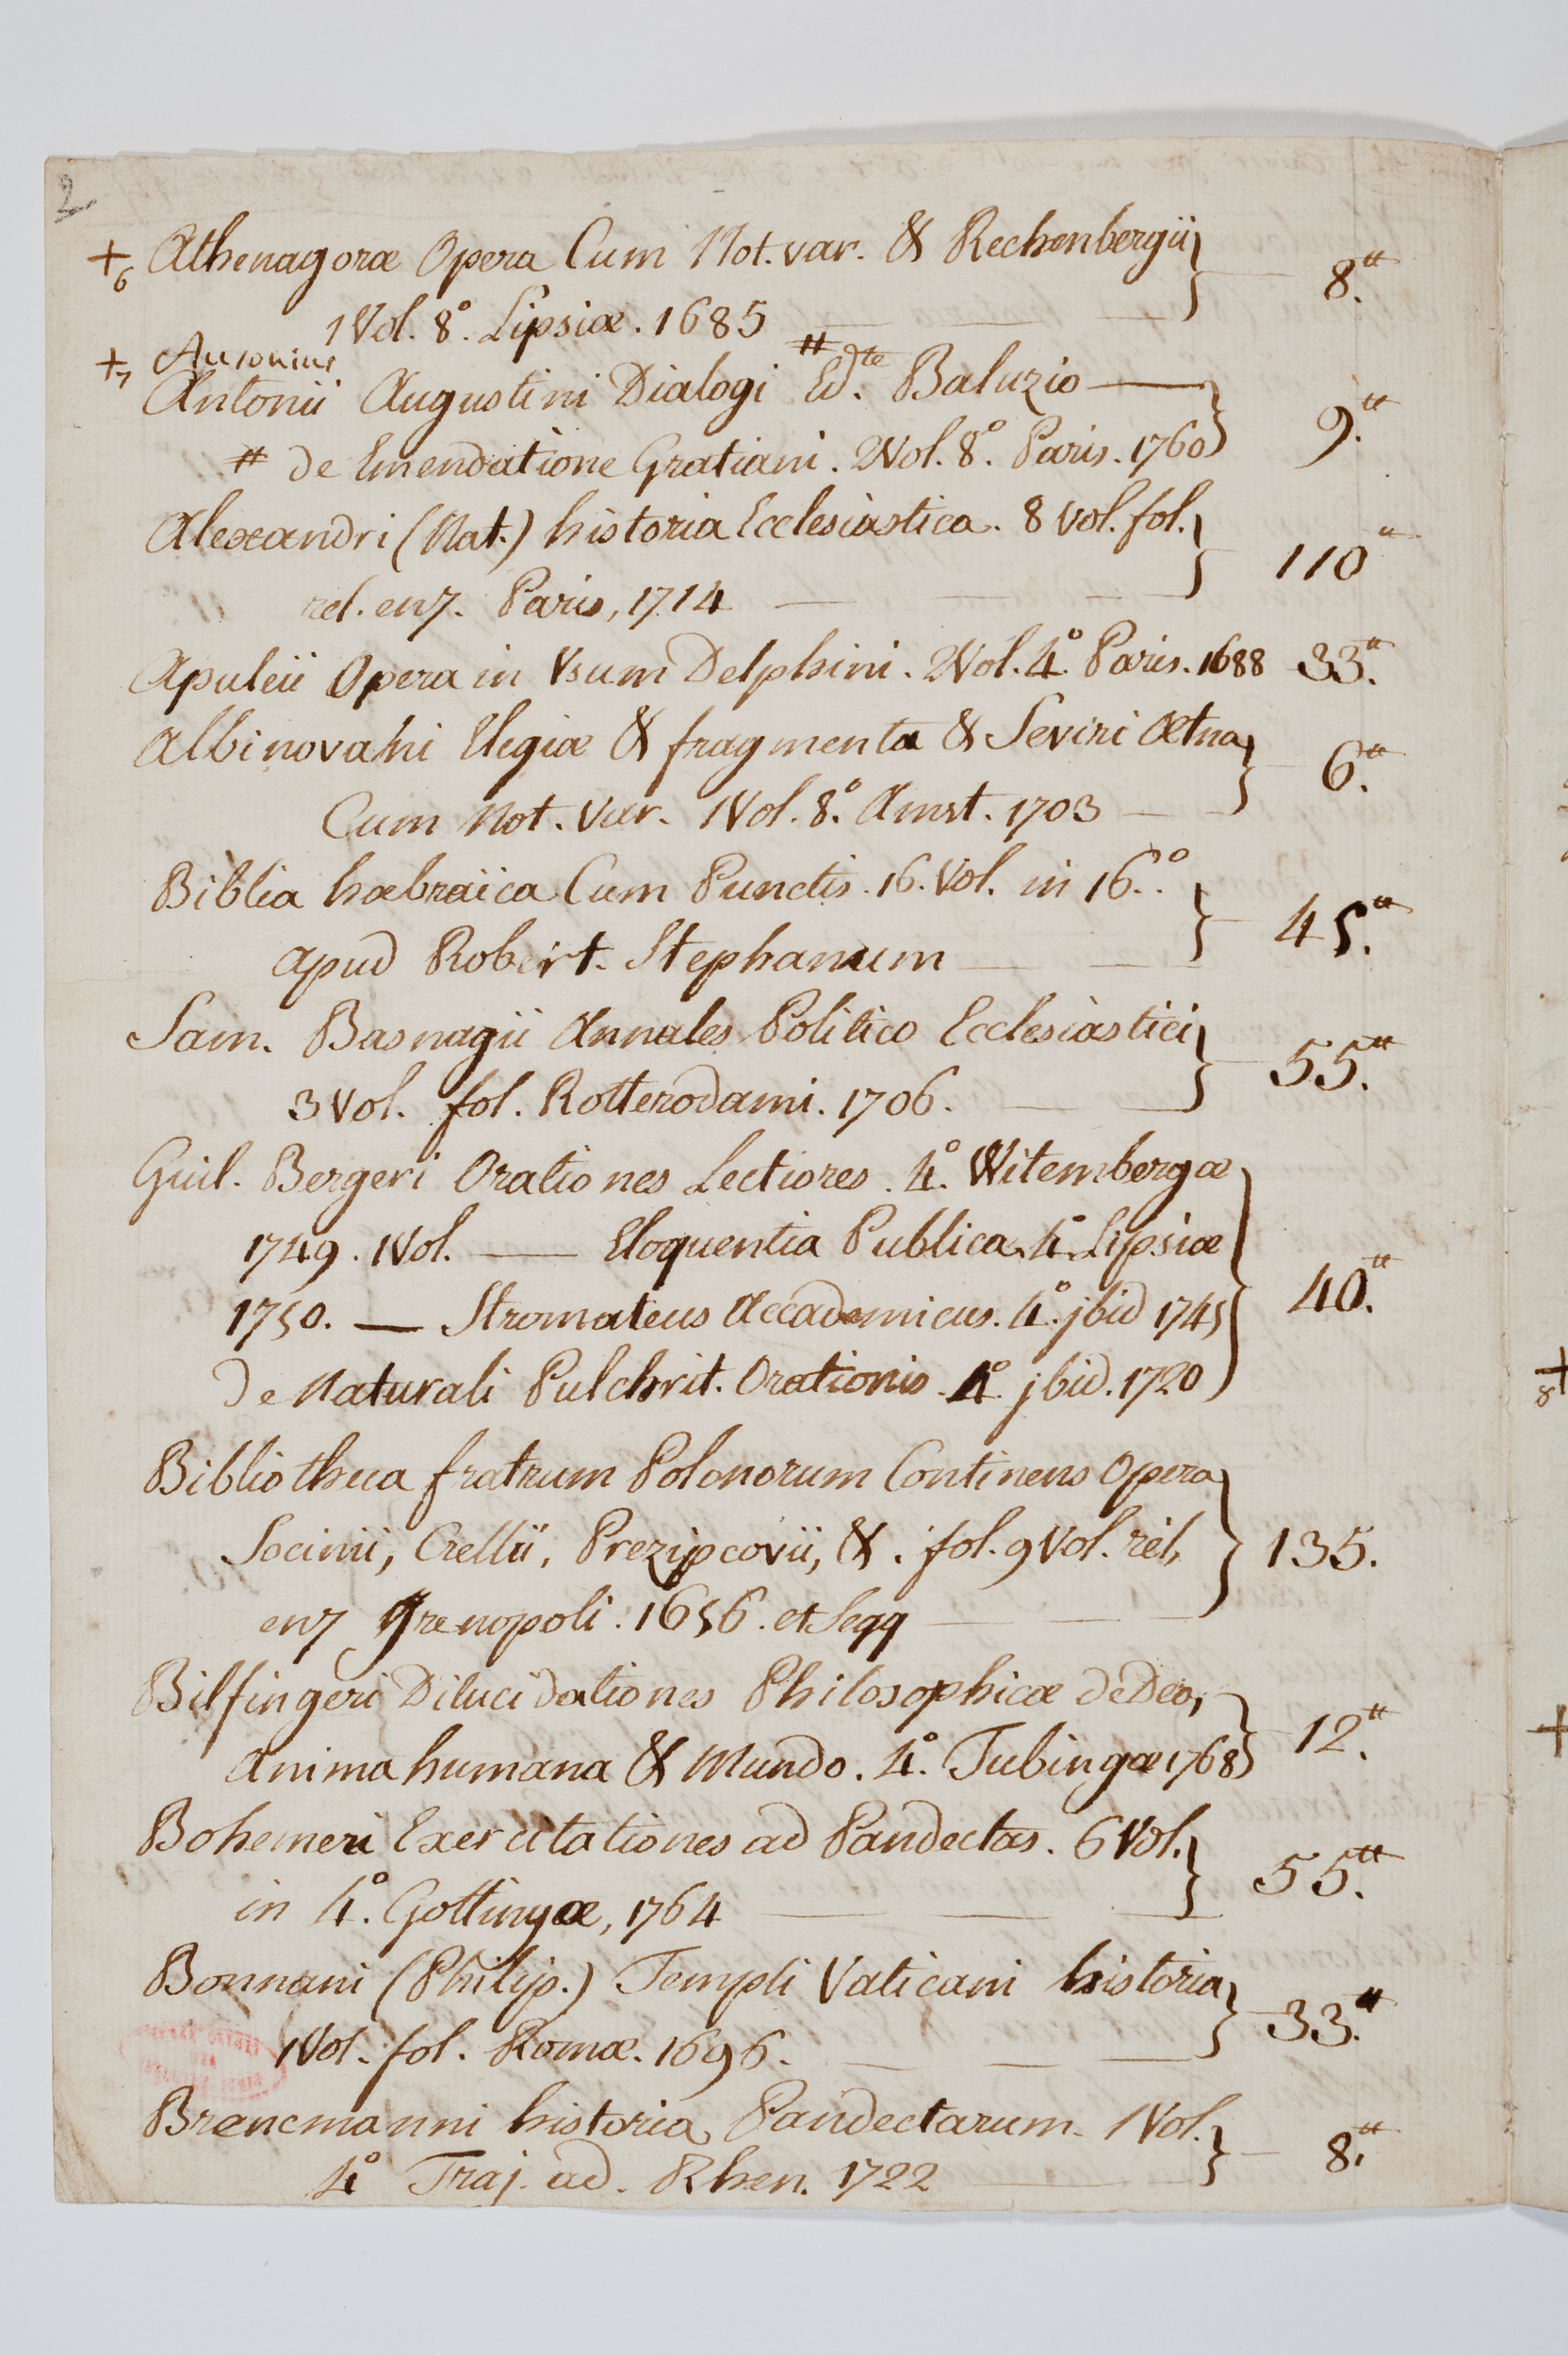 2
+6 Athenagoræ Opera Cum Not. var. & Rechenbergii } 8.tt
1 Vol. 8.° Lipsiæ. 1685
+7 Ausonius
Antonii Augustini Dialogi # Ed.te Baluzio
# de Emendatione Gratiani. 2 Vol. 8.° Paris. 1760 } 9.tt
Alexandri (Nat.) historia Ecclesiastica. 8 Vol. fol.
rel. en 7. Paris, 1714 } 110tt
Apuleii Opera in Vsum Delphini. 2 Vol. 4.° Paris. 1688 33.tt
Albinovani Elegiæ & fragmenta & Severi Ætna
Cum Not. Var. 1 Vol. 8.° Amst. 1703 } 6.tt
Biblia hæbraïca Cum Punctis. 16. Vol. in 16.°
apud Robert. Stephanum } 45.tt
Sam. Basnagii Annales Politico Ecclesiastici
3 Vol. fol. Rotterodami. 1706. } 55.tt
Guil. Bergeri Orationes Lectiores. 4.° Witembergæ
1749. 1 Vol. — Eloquentia Publica. 4.° Lipsiæ
1750. — Stromateus Accademicus. 4.° jbid 1745 } 40.tt
De Naturali Pulchrit. Orationis. 4.° jbid. 1720
Bibliotheca fratrum Polonorum Continens Opera
Socinii, Crellii, Prezipcovii, &. fol. 9 Vol. rel, } 135.
en 7 Jrenopoli. 1656. et Seqq
Bilfingeri Dilucidationes Philosophicæ de Deo,
Anima humana & Mundo. 4.° Tubingæ 1768 } 12.tt
Bohemeri Exercitationes ad Pandectas. 6 Vol.
in 4.° Gottingæ, 1764 } 55.tt
Bonnani (Philip.) Templi Vaticani historia
1 Vol. fol. Romæ. 1696. } 33.tt
Brencmanni historia Pandectarum. 1 Vol.
4° Traj. ad. Rhen. 1722 } 8.tt
+8
+